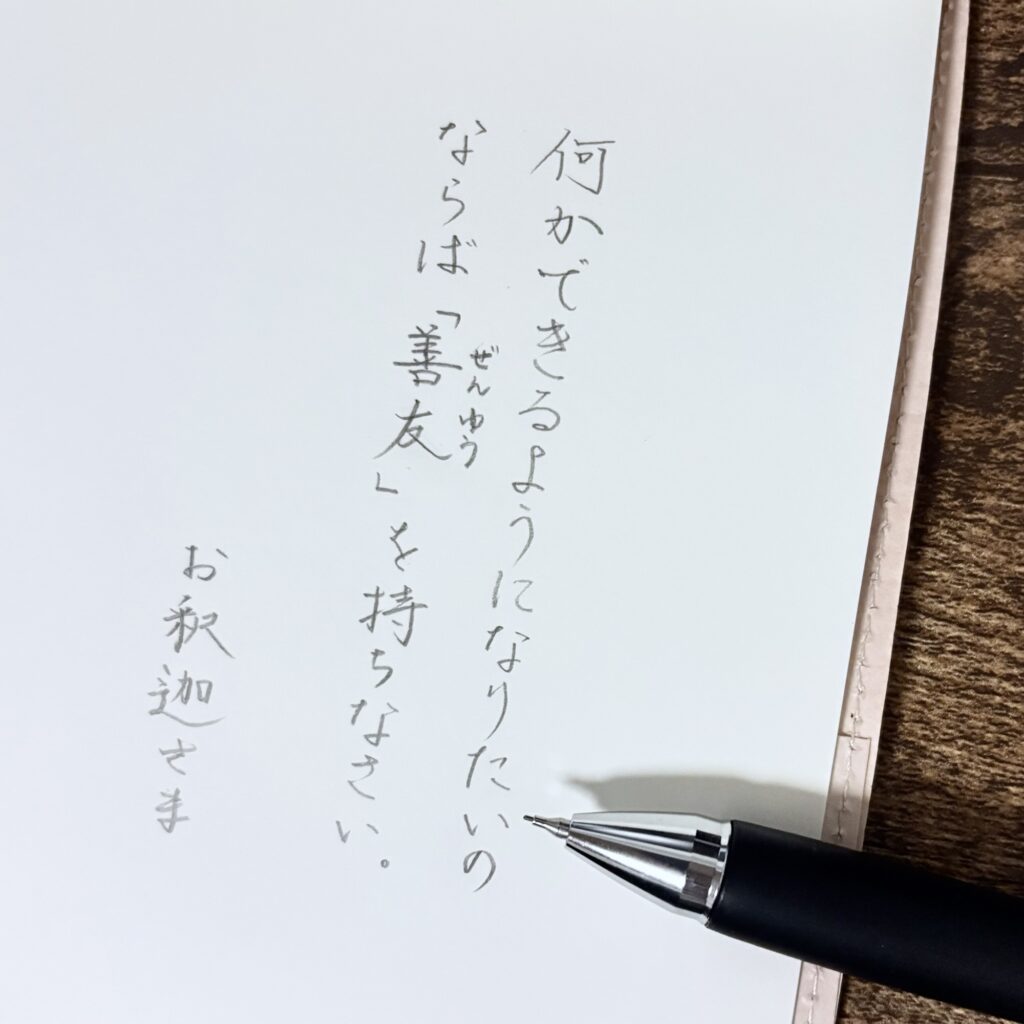 何かできるようになりたいの
ならば「善友」を持ちなさい。
ぜんゆう
お釈迦さま